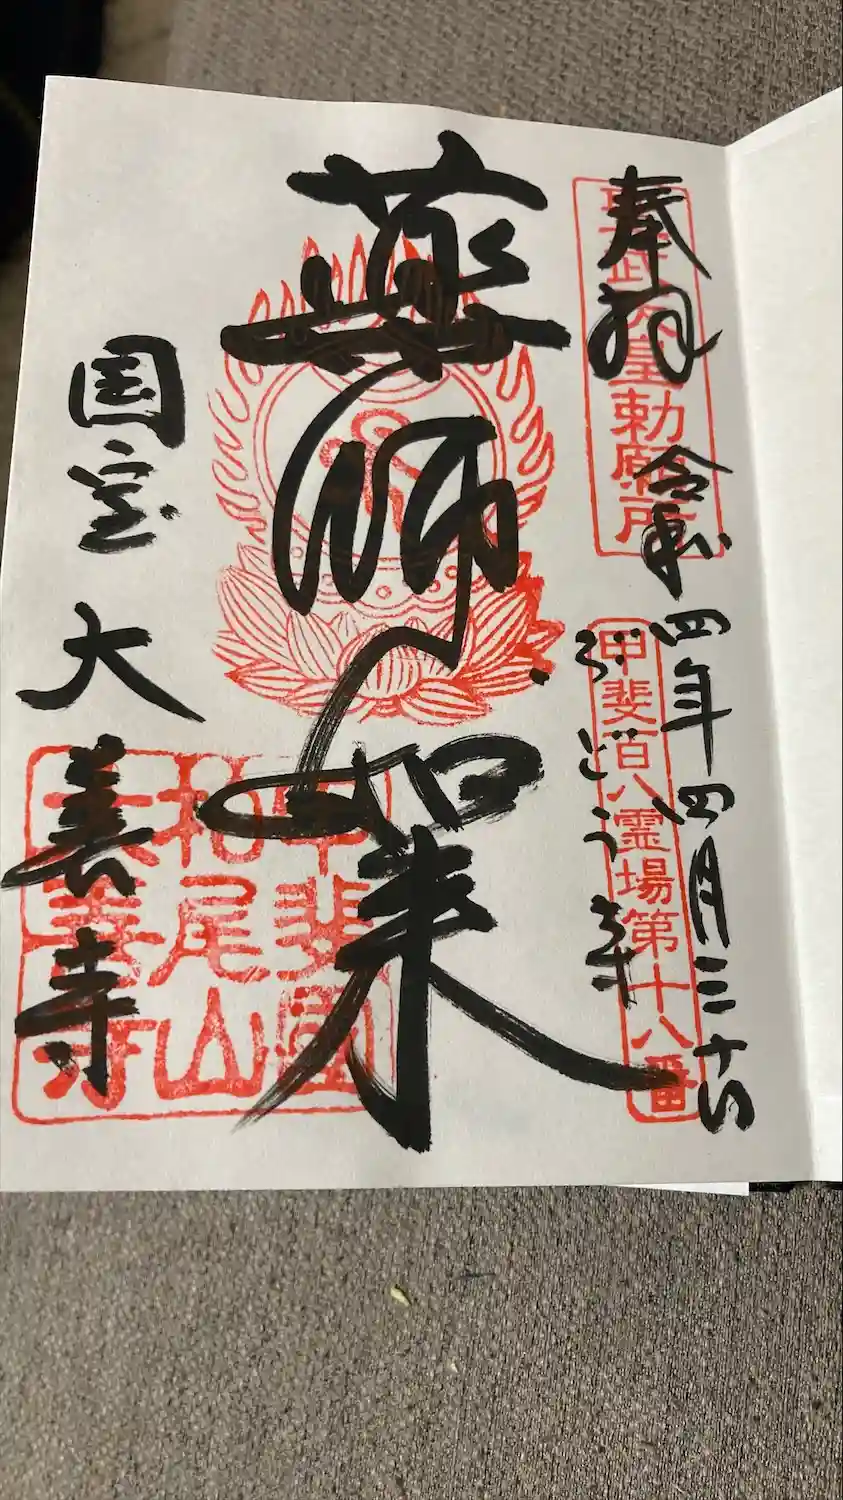 奉拝
聖武天皇勅願所
令和四年四月三十日
甲斐百八霊場第十八番
ぶどう寺
薬師如来
国宝 大善寺
甲斐國
柏尾山
大善寺